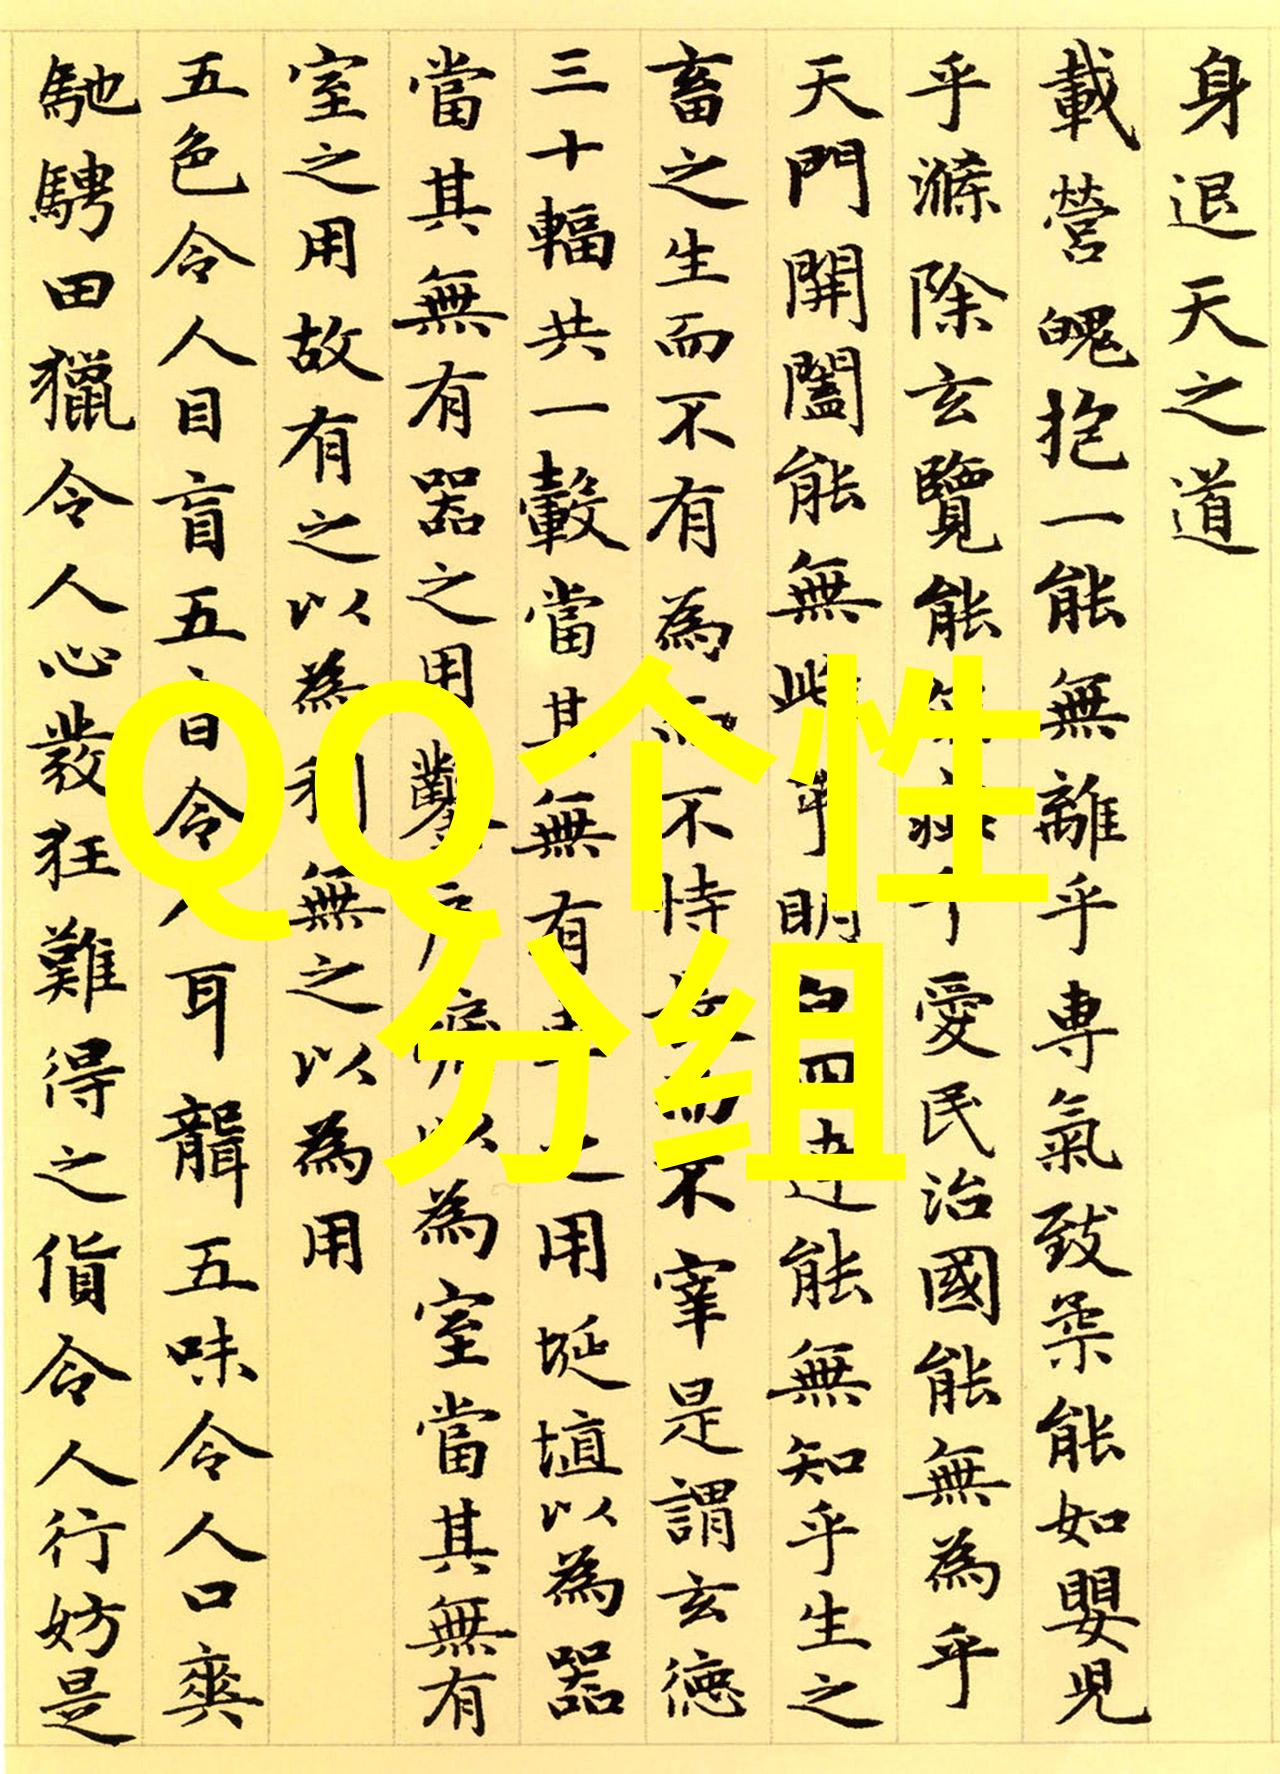 身退天之道
載營魄抱一能無離乎専氣致柔能如嬰児
乎滌除玄覽能無疵乎愛民治國能無為乎
天門開闔能無乎明白四達能無知乎生之
畜之生而不有為而不恃而不宰是謂玄德
三十輻共一轂當其無有車之用埏埴以為器
當其無有器之用鑿户牖以為室當其無有
室之用故有之以為利無之以為用
五色令人目盲五音令人耳聾五味令人口爽
馳騁田獵令人心發狂難得之貨令人行妨是
QQ个性
分组